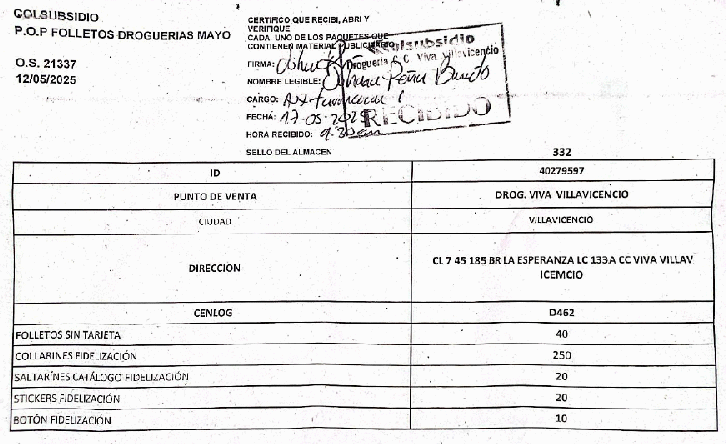 COLSUBSIDIO
P.O.P FOLLETOS DROGUERIAS MAYO
O.S. 21337
12/05/2025
CERTIFICO QUE RECIBI, ABRI Y
VERIFIQUE
CADA UNO DE LOS PAQUETES QUE
CONTIENEN MATERIAL PUBLICITARIO
Colsubsidio
Drogueria C.C. Viva Villavicencio
RECIBIDO
FIRMA:
NOMBRE LEGIBLE: Peña
CARGO:
FECHA: 17-05-2025
HORA RECIBIDO: 9:30am
SELLO DEL ALMACEN 332
ID 40279597
PUNTO DE VENTA DROG. VIVA VILLAVICENCIO
CIUDAD VILLAVICENCIO
DIRECCION CL 7 45 185 BR LA ESPERANZA LC 133A CC VIVA VILLAV
ICEMCIO
CENLOG D462
FOLLETOS SIN TARJETA 40
COLLARINES FIDELIZACIÓN 250
SALTARINES CATÁLOGO FIDELIZACIÓN 20
STICKERS FIDELIZACIÓN 20
BOTÓN FIDELIZACIÓN 10